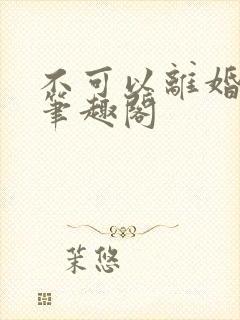 不可以離婚
筆趣閣
茉悠